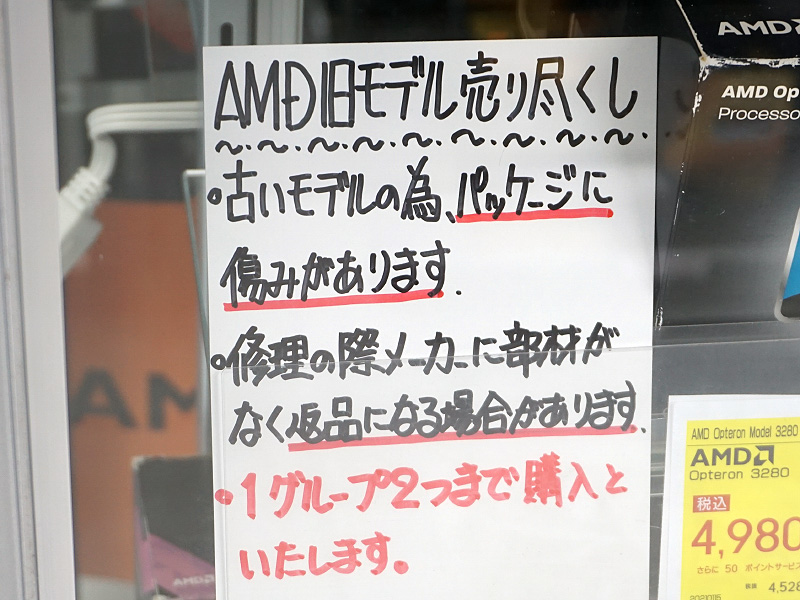 AMD旧モデル売り尽くし
〜.〜.〜.〜.〜.〜.〜.〜.〜.
・古いモデルの為、パッケージに
傷みがあります.
・修理の際メーカーに部材が
なく返品になる場合があります.
・1グループ2つまで購入と
いたします。
AMD
AMD Op
Processo
AM
AMD
AMD Opteron Model 3280
AMD
Opteron 3280
税込
4,980
さらに 50 ポイントサービス
税抜 4,528
20210115